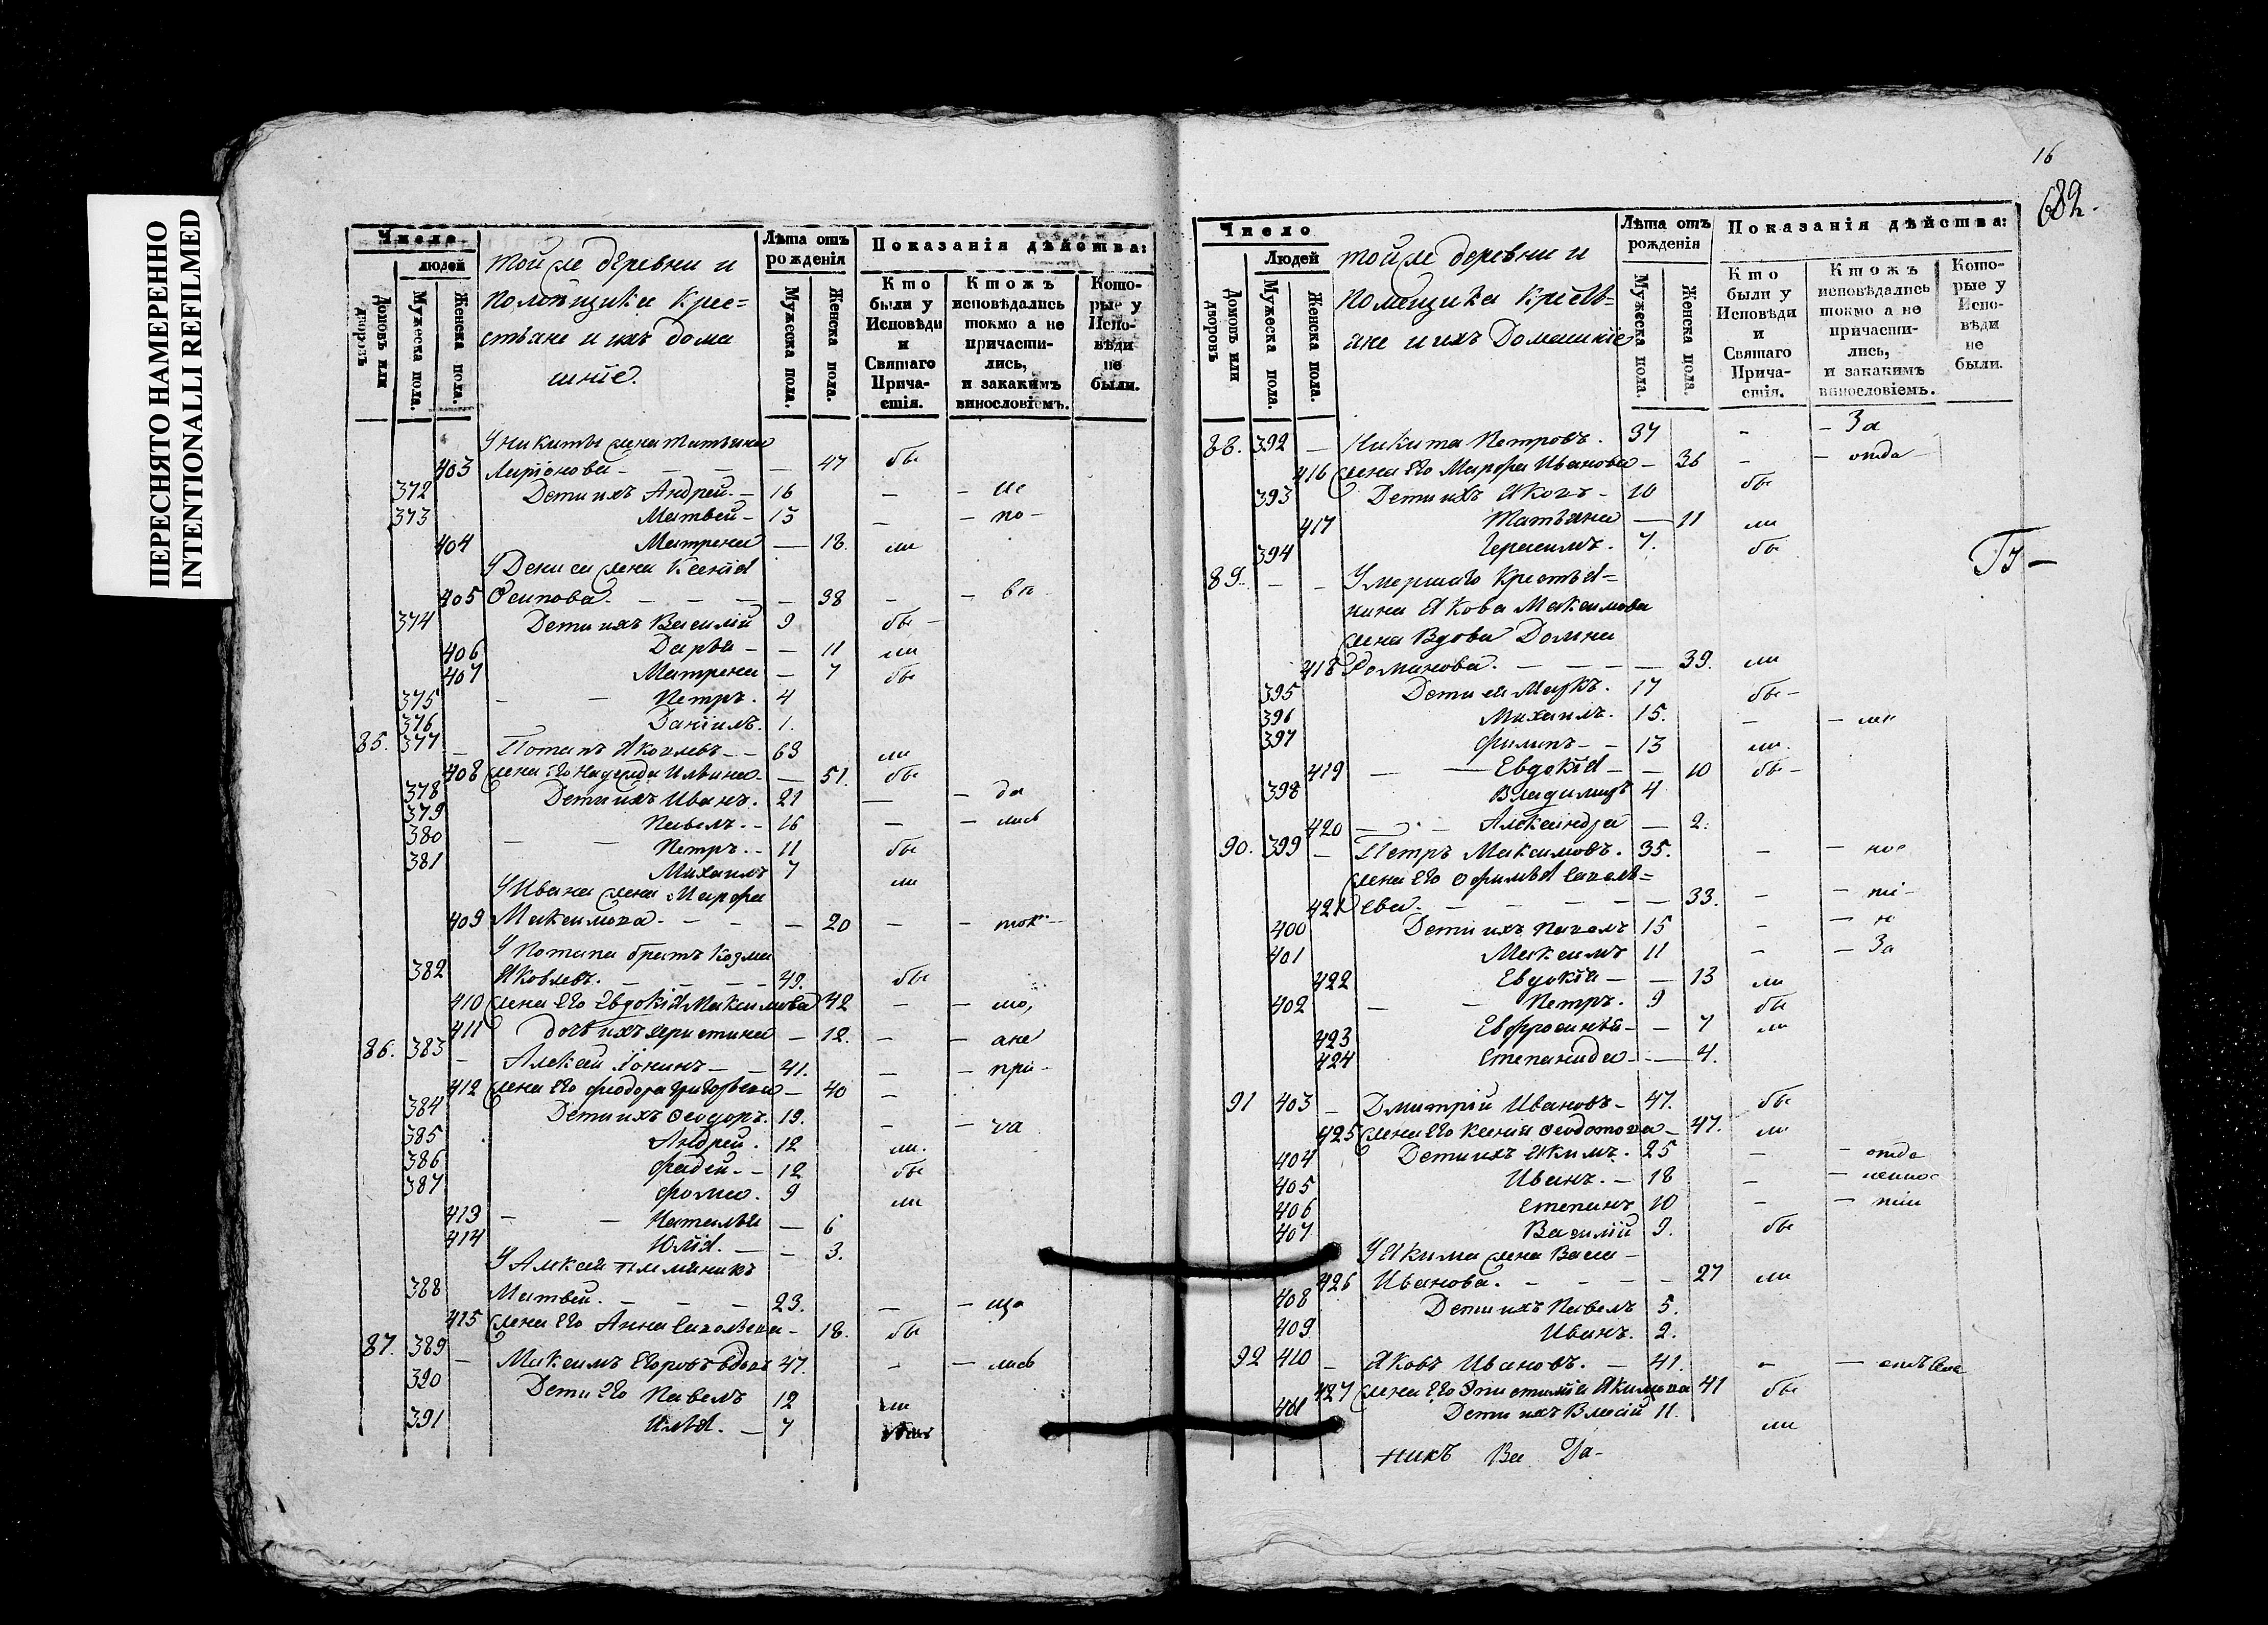 ПЕРЕСНЯТО НАМЕРЕННО
INTENTIONALLI REFILMED
Число
людей
Домовъ или дворовъ
Мужеска пола.
Женска пола.
той же деревни и
помѣщика крес=
стьяне и ихъ дома
шніе.
Лѣта отъ рожденія
Мужеска пола.
Женска пола.
Показанія дѣйства:
Кто были у Исповѣди и Святаго Прича-стія.
Ктожъ исповѣдались токмо а не причасти-лись, и закакимъ винословіемъ.
Кото-рые у Испо-вѣди не были.
У Никиты жена Татьяна
403 — — — 47 бы
372 Дети ихъ Андрей — 16 — — не
373 Матвей — 13 — — по —
404 Матрена — 18. ли
У Дениса жена Ксенія
405 Осипова. — — — — 38 — — вѣ
374 Дети ихъ Василій 9 бы —
406 Дарья — — 11 ли
407 Матрена — 7 бы
375 — — Петръ. 4
376 Даніилъ. 1.
85. 377 — Потапъ Яковлевъ — — 63 ли
408 жена Его Надежда Ильина — — 51. бы
378 Дети ихъ Иванъ. 21 — — да
379 Павелъ. — 16 — — лись
380 — — Петръ. — 11 бы
381 Михаилъ 7 ли
У Ивана жена Марфа
409 Максимова — — — — 20 — — ток —
У Потапа братъ Козма
382 Яковлевъ. — — — — 49. бы
410 жена Его Евдокія Максимова 42 — — мо,
411 дочь ихъ Христина — 12. — — ане
86. 383 — Алексей Іонинъ — — 41. — — при —
412 жена Его Феодора Григорьева — 40 —
384 Дети ихъ Феодоръ. 19. — — ча
385 Андрей. 12 ли.
386 Фадей. — 12 бы
387 Фома. 9 ли
413 — — Наталья — 6
414 Юлія. — — 3.
У Алексея племяникъ
388 Матвей. — — — 23. — — ща
415 жена Его Анна Савельева — 18. бы
87. 389 — Максимъ Егоровъ вдовъ 47. — — лись
390 Дети Его Павелъ 12 ли
391 Илья. — 7
16
682.
Число
Людей
Домовъ или дворовъ
Мужеска пола.
Женска пола.
той же деревни и
помещика крестья=
ане и ихъ Домашніе
Лѣта отъ рожденія
Мужеска пола.
Женска пола.
Показанія дѣйства:
Кто были у Исповѣди и Святаго Прича-стія.
Ктожъ исповѣдались токмо а не причасти-лись, и закакимъ винословіемъ.
Кото-рые у Испо-вѣди не были.
88. 392 — Никита Петровъ. 37 — — За
416 жена Его Марфа Иванова — 36 — — отда —
393 Дети ихъ Яковъ — 10 бы
417 Татьяна — 11 ли
394 Герасимъ. 7. бы
89. — — Умершаго Крестья=
нина Якова Максимова
жена Вдова Домна
418 Романова. — — — — 39. ли
395 Дети ея Маркъ. 17 бы —
396 Михаилъ. 15. — — ле
397 Филипъ — — 13 ли.
419 — — Евдокія — — 10 бы —
398 Владимиръ 4
420 — — Александра — 2.
90. 399 — Петръ Максимовъ. 35. — — нос
жена Его Офимья Савель=
421 ева. — — — — — 33. — — ті —
400 Дети ихъ Павелъ 15 — — н
401 Максимъ 11 — — За
422 Евдокія — — 13 ли
402 — — Петръ. 9 бы
423 Евфросинья — — 7 ли
424 Степанида — — 4.
91 403 — Дмитрій Ивановъ — 47. бы
425 жена Его Ксенія Феодотова — 47. ли
404 Дети ихъ Якимъ. 25 — — отда
405 Иванъ. — 18 — — леннос
406 Степанъ 10 — — тіи
407 Василій 9. бы
У Якима жена Васа —
426 Иванова. — — — — 27 ли
408 Дети ихъ Павелъ 5.
409 Иванъ. 2.
92 410 — Яковъ Ивановъ. — 41. — — отъ
427 жена Его Эпистимія Якимова 41 бы
411 Дети ихъ Власій 11. ли
никъ Ва Га-